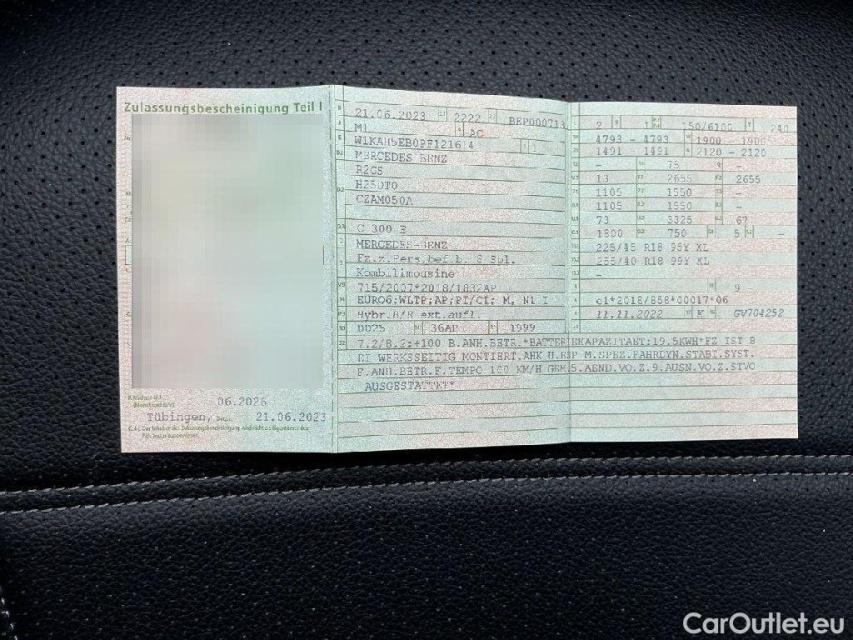 Zulassungsbescheinigung Teil I
06.2026
Tübingen, 21.06.2023
21.06.2023 2222 BEP000713
M1 AC
W1KAH5EB0PF121614
MERCEDES BENZ
R2CS
H25DT0
CZAM050A
C 300 E
MERCEDES-BENZ
Fz.z.Pers.bef.b. 8 Spl.
Kombilimousine
715/2007*2018/1832AP
EURO6;WLTP;AP;PI/CI; M, N1 I
Hybr.B/E ext.aufl.
0025 36AP 1999
2 150/6100 240
4793 - 4793 1900 - 1900
1491 - 1491 2120 - 2120
- 75 -
13 2655 2655
1105 1550 -
1105 1550 -
73 3325 67
1800 750 5 -
225/45 R18 95Y XL
255/40 R18 99Y XL
-
9
e1*2018/858*00017*06
11.11.2022 K GV704252
7.2/8.2:+100 B.ANH.BETR.*BATTERIEKAPAZITAET:19.5KWH*FZ IST B
EI WERKSSEITIG MONTIERT.AHK U.ESP M.SPEZ.FAHRDYN.STABI.SYST.
F.ANH.BETR.F.TEMPO 100 KM/H GEM.5.AEND.VO.Z.9.AUSN.VO.Z.STVO
AUSGESTATTET*
CarOutlet.eu